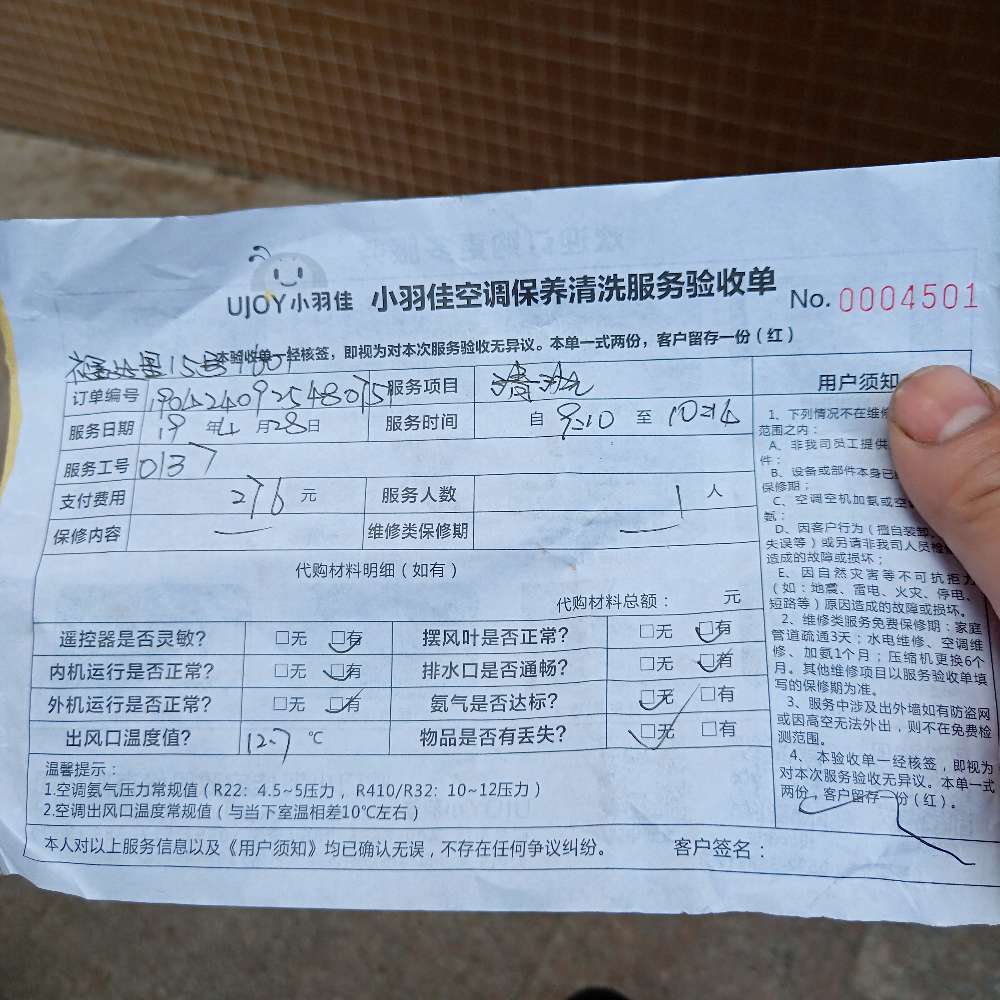 UJOY小羽佳 小羽佳空调保养清洗服务验收单 No. 0004501
本验收单一经核签，即视为对本次服务验收无异议。本单一式两份，客户留存一份（红）
订单编号 19042409254807515 服务项目 清洗
服务日期 19 年 4 月 28 日 服务时间 自 9:10 至 10:14
服务工号 0137
支付费用 276 元 服务人数 1 人
保修内容 — 维修类保修期 —
代购材料明细（如有）
代购材料总额： 元
遥控器是否灵敏? □无 □有 摆风叶是否正常? □无 □有
内机运行是否正常? □无 □有 排水口是否通畅? □无 □有
外机运行是否正常? □无 □有 氨气是否达标? □无 □有
出风口温度值? 12.7 ℃ 物品是否有丢失? □无 □有
温馨提示：
1.空调氨气压力常规值（R22：4.5~5压力，R410/R32：10~12压力）
2.空调出风口温度常规值（与当下室温相差10℃左右）
本人对以上服务信息以及《用户须知》均已确认无误，不存在任何争议纠纷。 客户签名：
用户须知
1、下列情况不在维修
范围之内：
A、非我司员工提供
件；
B、设备或部件本身已
保修期；
C、空调空机加氨或空
氨；
D、因客户行为（擅自装卸、
失误等）或另请非我司人员检
造成的故障或损坏；
E、因自然灾害等不可抗拒力
（如：地震、雷电、火灾、停电、
短路等）原因造成的故障或损坏。
2、维修类服务免费保修期：家庭
管道疏通3天；水电维修、空调维
修、加氨1个月；压缩机更换6个
月。其他维修项目以服务验收单填
写的保修期为准。
3、服务中涉及出外墙如有防盗网
或因高空无法外出，则不在免费检
测范围。
4、本验收单一经核签，即视为
对本次服务验收无异议。本单一式
两份，客户留存一份（红）。